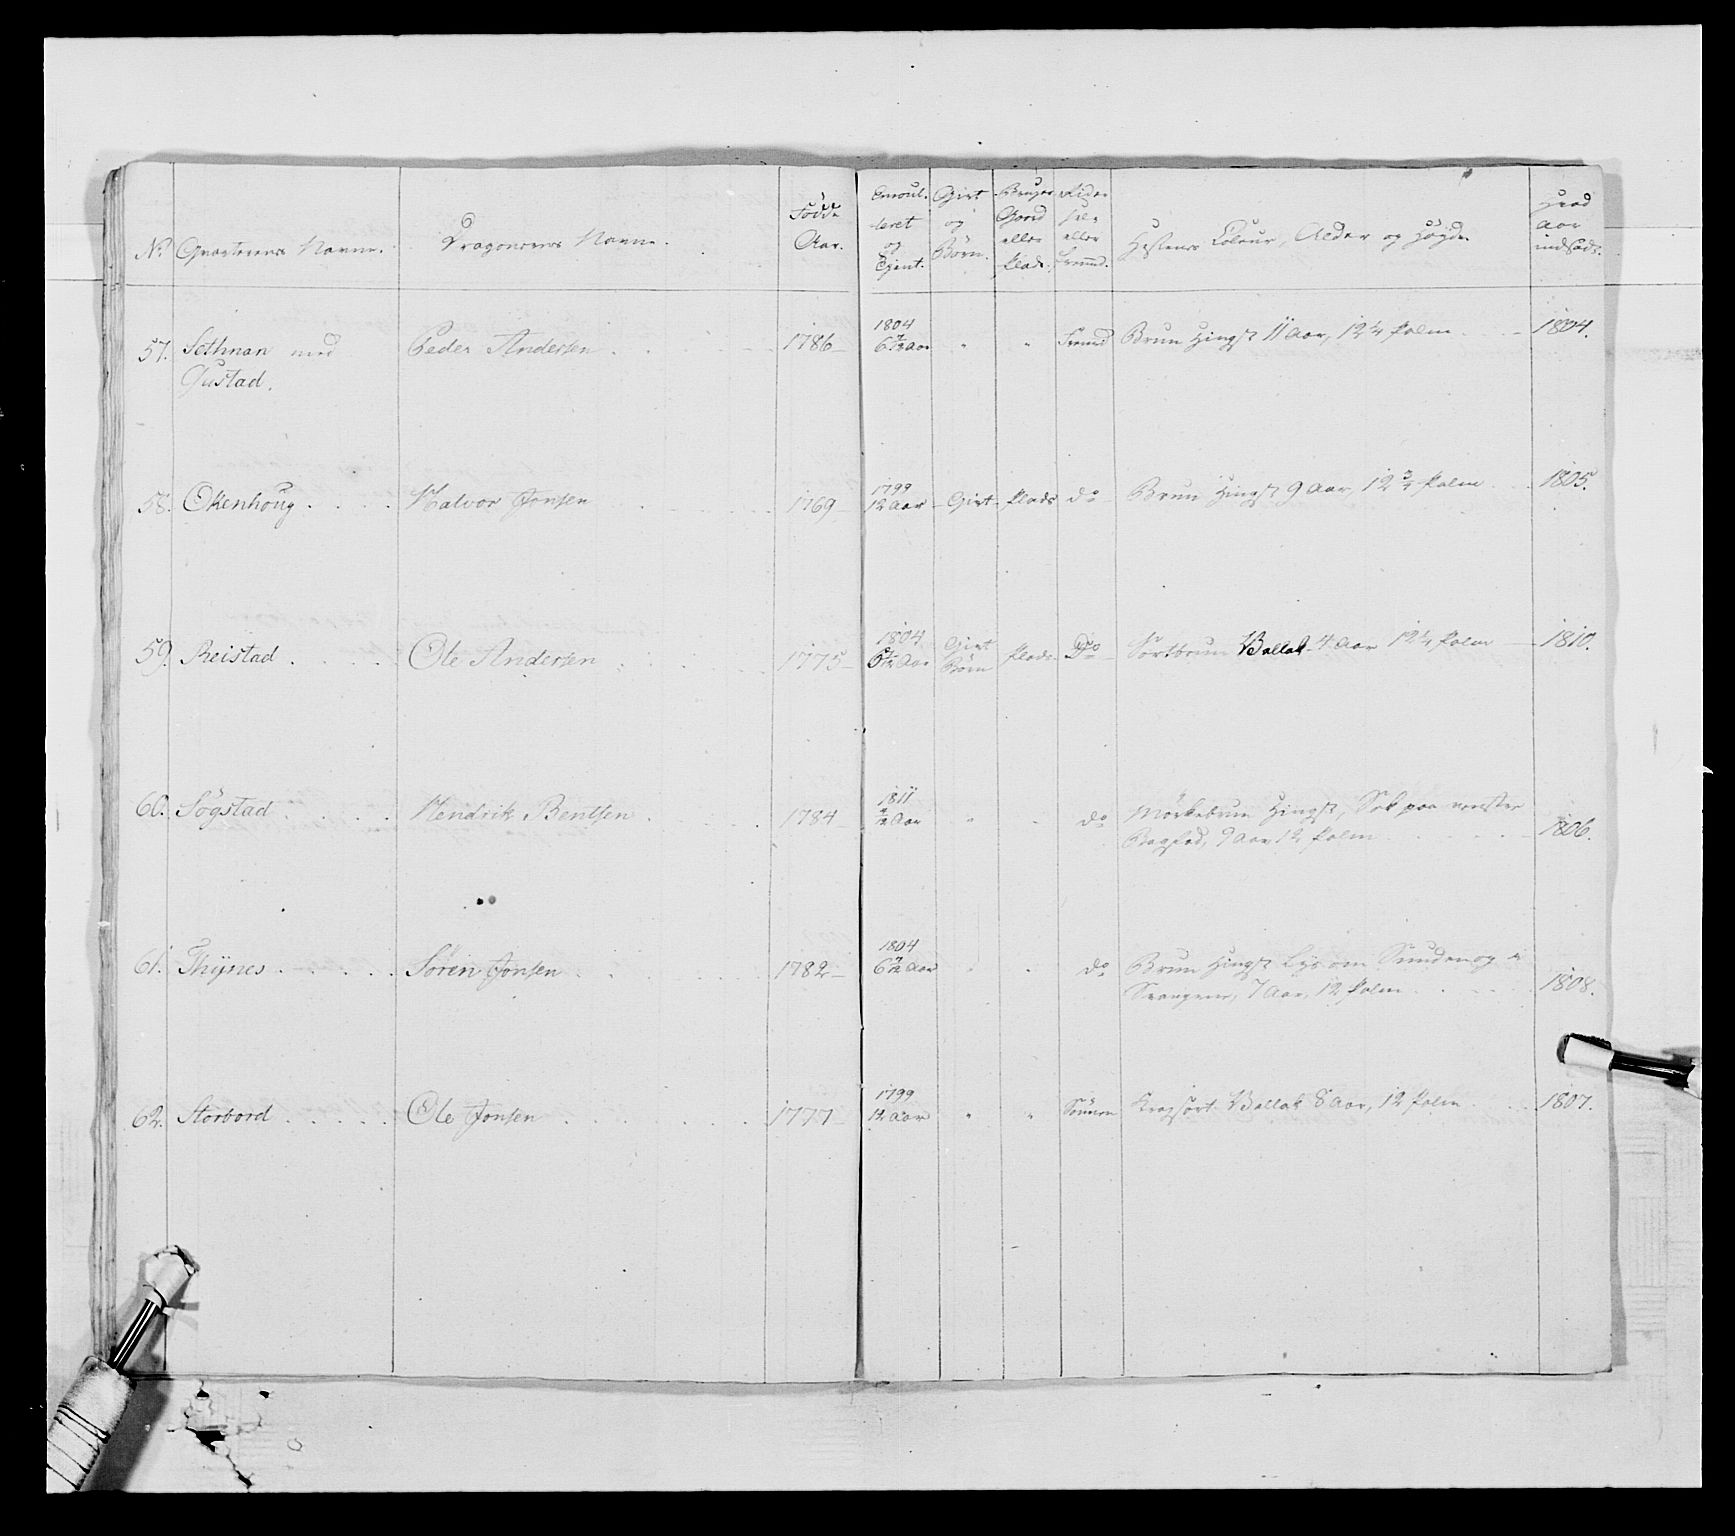 No Qvarterens Navne. Dragonernes Navne. Födde Aar. Enroulleret og Tjent. Givt og Börn. Bruger Gaard eller Plads. Rider selv eller Fremd. Hestens Coleur, Alder og Höyde Hvad Aar indsadt.
57. Sethnan med Peder Andersen 1786 1804 6 7/12 Aar " " Fremd Brun Hingst 11 Aar, 12 1/4 Palm 1804.
Gustad.
58. Okenhoug Halvor Jonsen 1769 1799 12 Aar Givt Plads do Brun Hingst 9 Aar, 12 3/4 Palm 1805.
59. Reistad Ole Andersen 1775 1804 6 7/12 Aar Givt Börn Plads Do Sortbrun Vallak 4 Aar 12 1/4 Palm 1810.
60. Sögstad Hendrik Bentsen 1784 1811 Aar " " do Mörkebrun Hingst, Sok paa venster
Bagfod, 9 Aar, 12 Palm 1806.
61. Thÿnes Sören Jonsen 1782 1804 6 7/12 Aar " " do Brun Hingst Lys om Munden og i
7 Aar, 12 Palm 1808.
62. Storbord Ole Jonsen 1777 1799 12 Aar " " Sönnen Vallak 8 Aar, 12 Palm 1807.